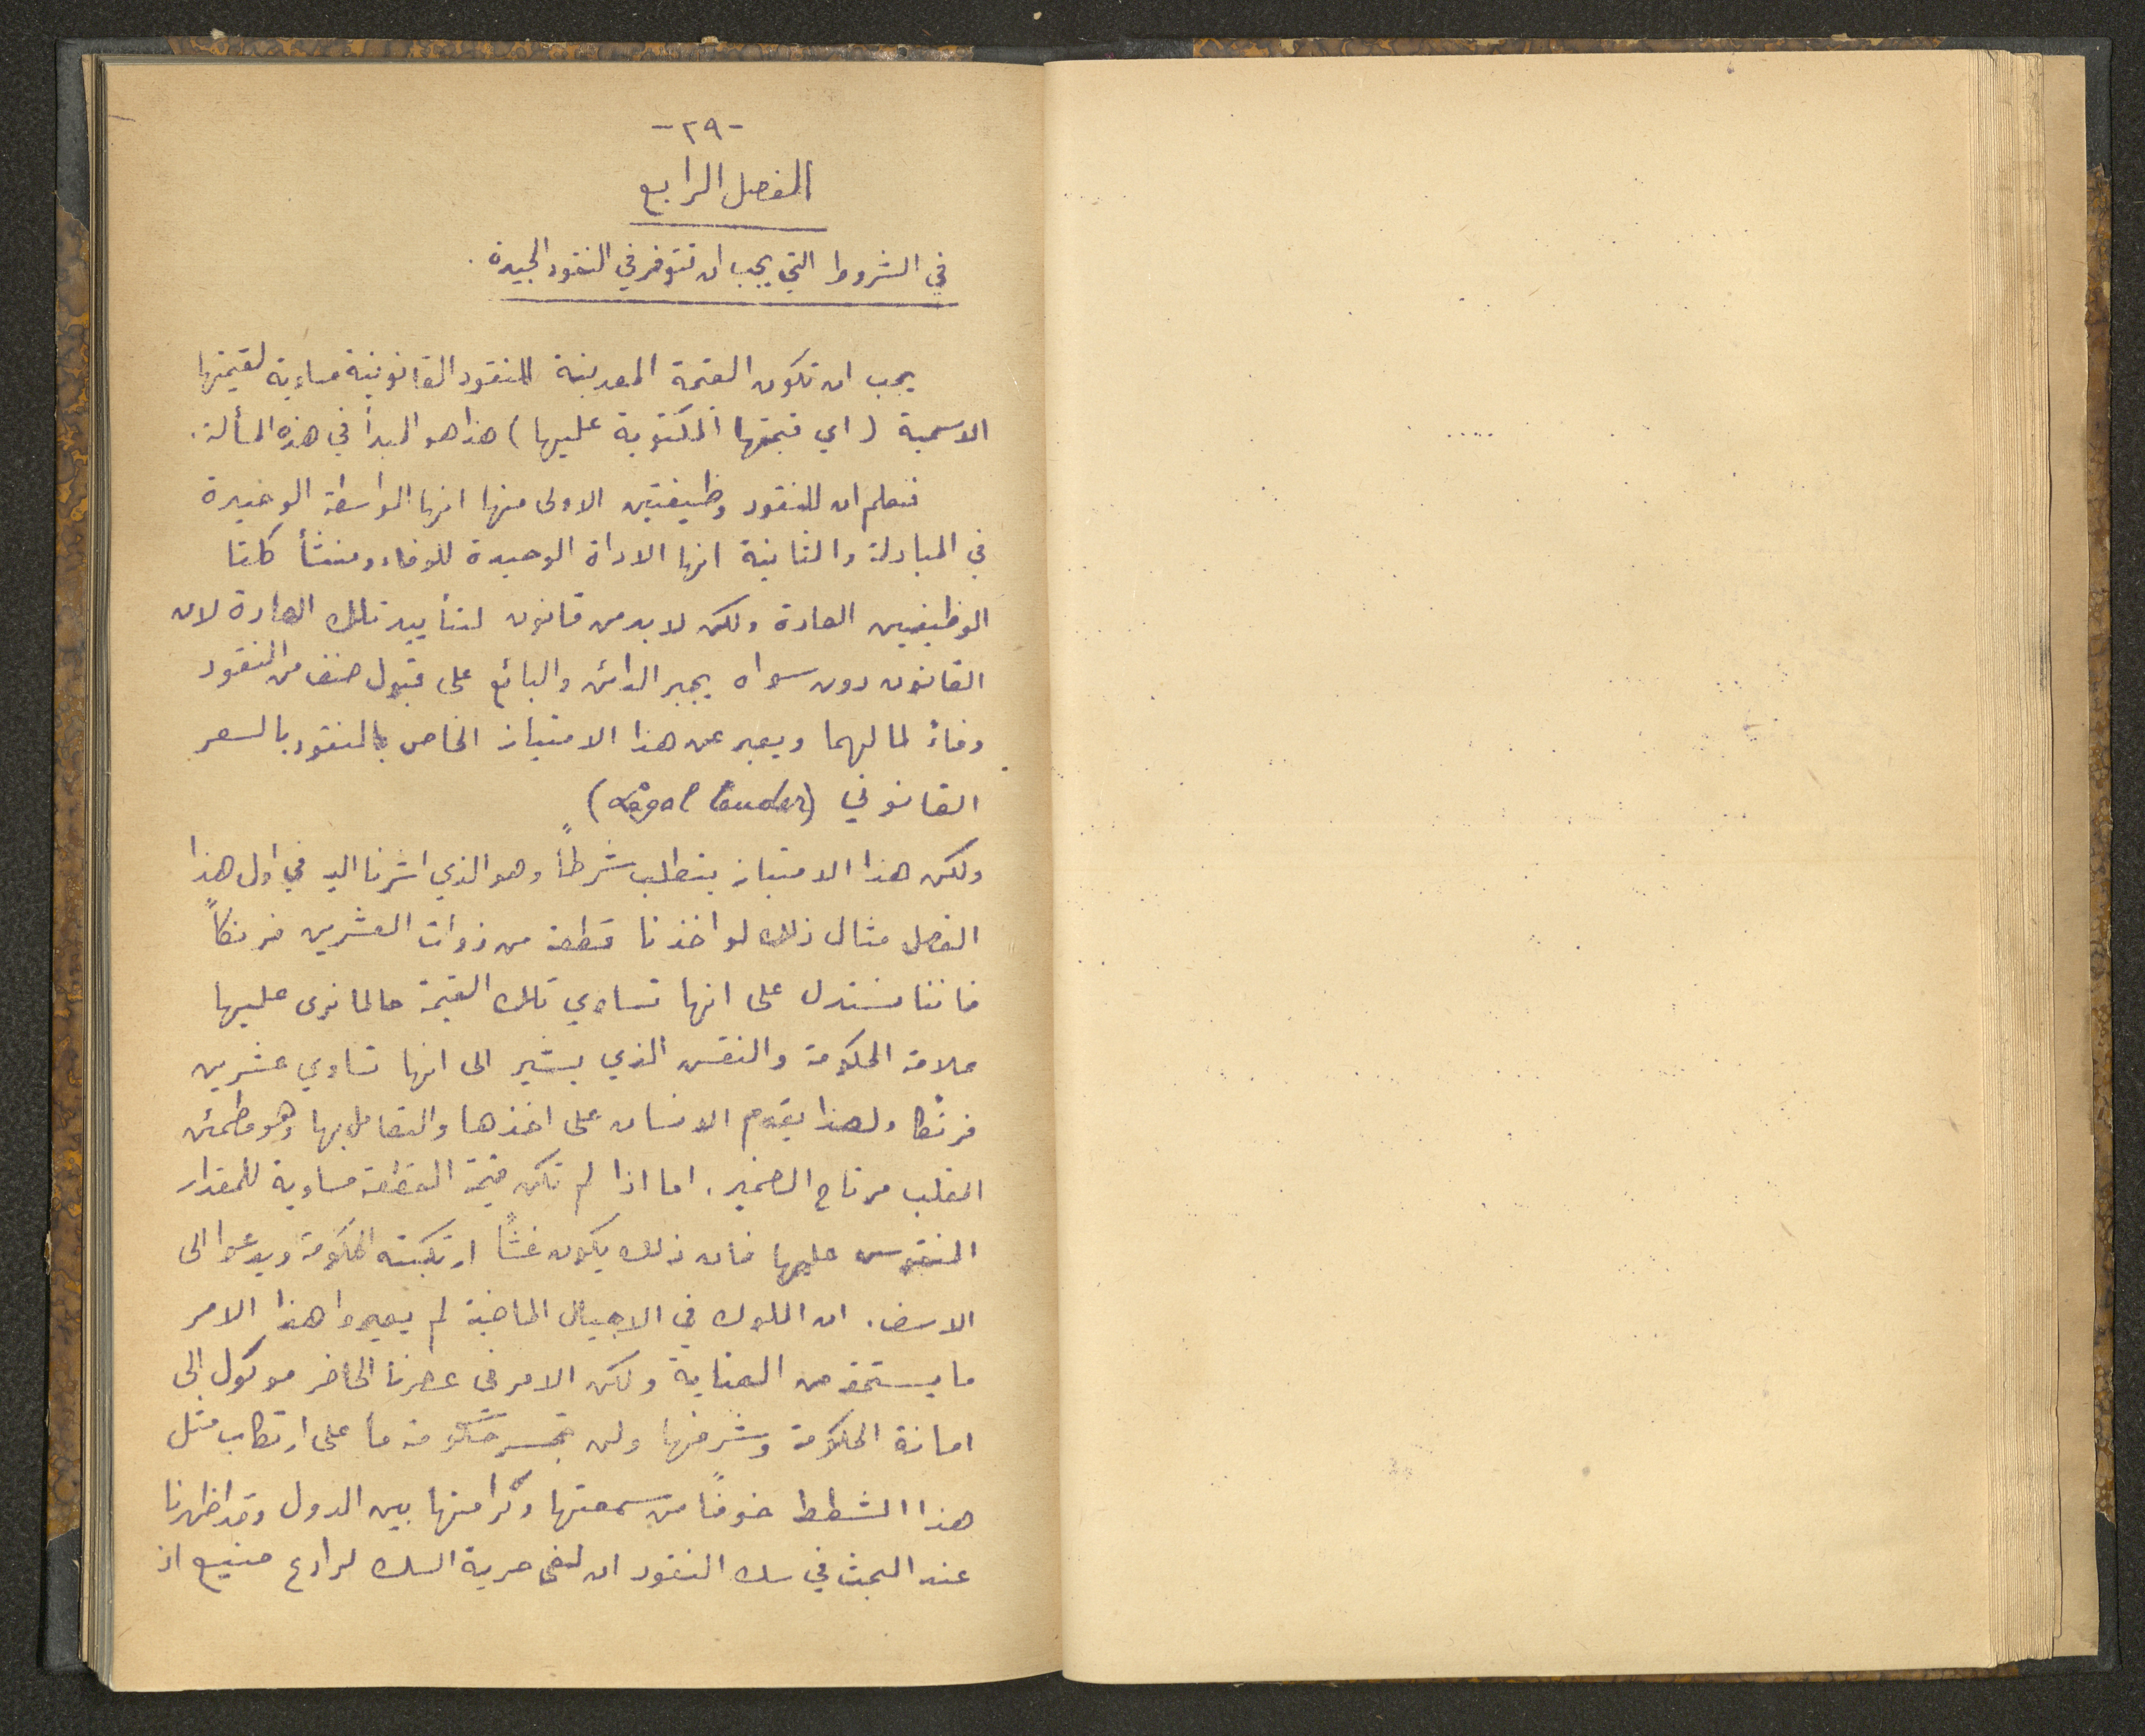 -٢٩-
الفصل الرابع
في الشروط التي يجب ان تتوفر في النقود الجيدة.
يجب ان تكون القيمة المعدنية للنقود القانونية مساوية لقيمتها
الاسمية (اي قيمتها المكتوبة عليها) هذا هو المبدأ في هذه المسألة.
فنعلم ان للنقود وظيفتين الاولى منها انها الواسطة الوحيدة
في المبادلة والثانية انها الاداة الوحيدة للوفاء ومنشأ كلتا
الوظيفيين العادة ولكن لا بد من قانون لتأييد تلك العادة لان
القانون دون سواه يجبر الدائن والبائع على قبول صنف من النقود
وفاءً لمالهما ويعبر عن هذا الامتياز الخاص بالنقود بالسعر
القانوني (Légal tender)
ولكن هذا الامتياز يتطلب شرطاً وهو الذي اشرنا اليه في اول هذا
الفصل مثال ذلك لو اخذنا قطعة من ذوات العشرين فرنكاً
فاننا نستدل على انها تساوي تلك القيمة حالما نرى عليها
علامة الحكومة والنقش الذي يشير الى انها تساوي عشرين
فرنكا ولهذا يقدم الانسان على اخذها والتعامل بها وهو مطمئن
القلب مرتاح الضمير. اما اذا لم تكن قيمة القطعة مساوية للمقدار
المنقوش عليها فان ذلك يكون غشاً ارتكبته الحكومة ويدعوا الى
الاسف. ان الملوك في الاجيال الماضية لم يعيروا هذا الامر
ما يستحقه من العناية ولكن الامر في عصرنا الحاضر موكول الى
امانة الحكومة وشرفها ولن تجسر حكومة ما على ارتكاب مثل
هذا الشطط خوفاً من سمعتها وكرامتها بين الدول وقد اظهرنا
عند البحث في سك النقود ان لفي حرية السك لرادع منيع اذ